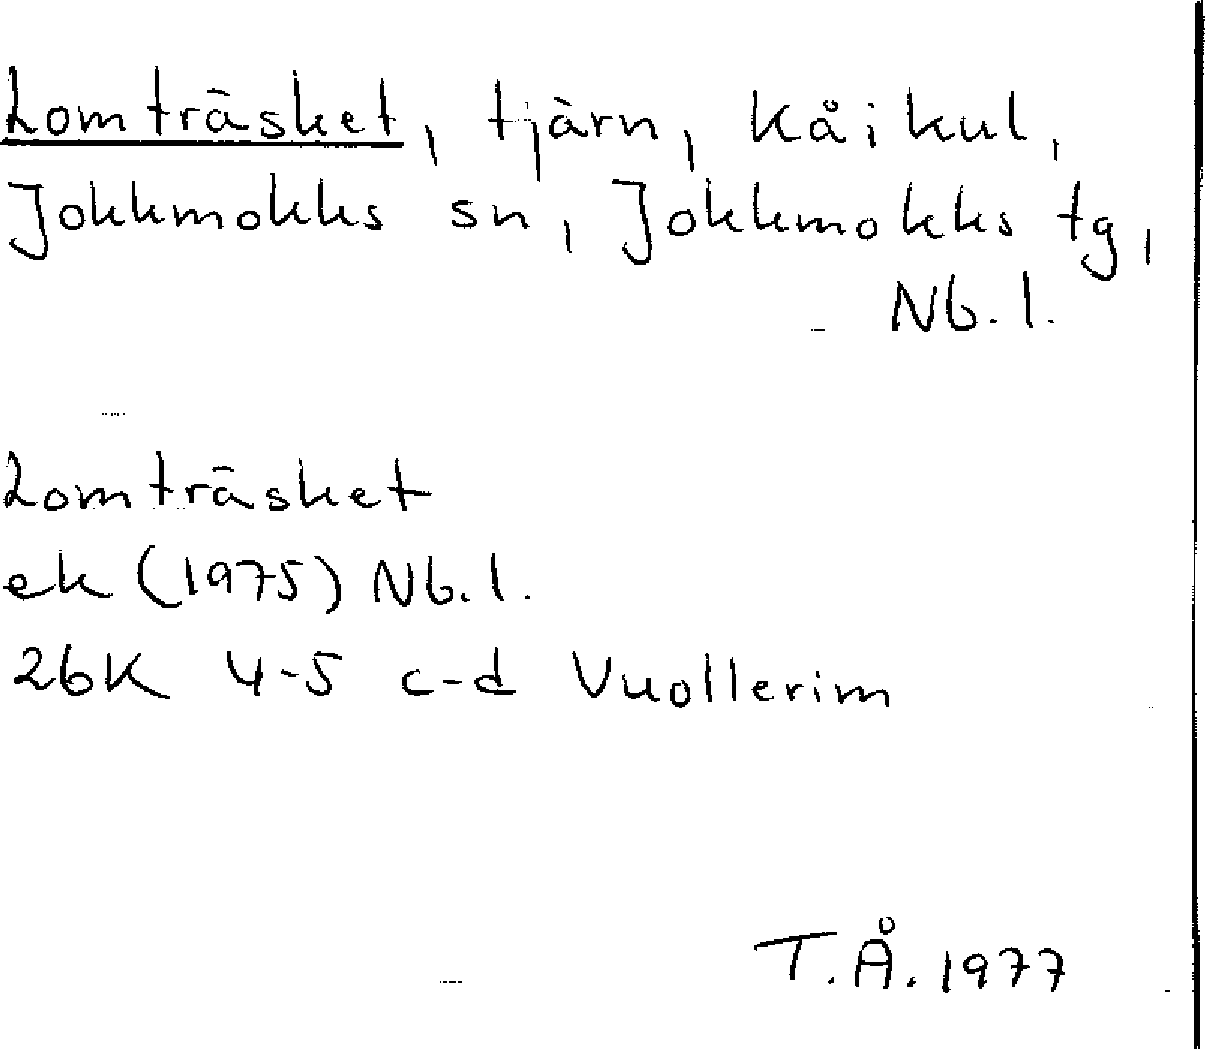 Lomträsket, tjärn, Kåikul,
Jokkmokks sn, Jokkmokks tg,
Nb. l.
Lomträsket
ek (1975) Nb. l.
26K 4-5 c-d Vuollerim
T.Å. 1977